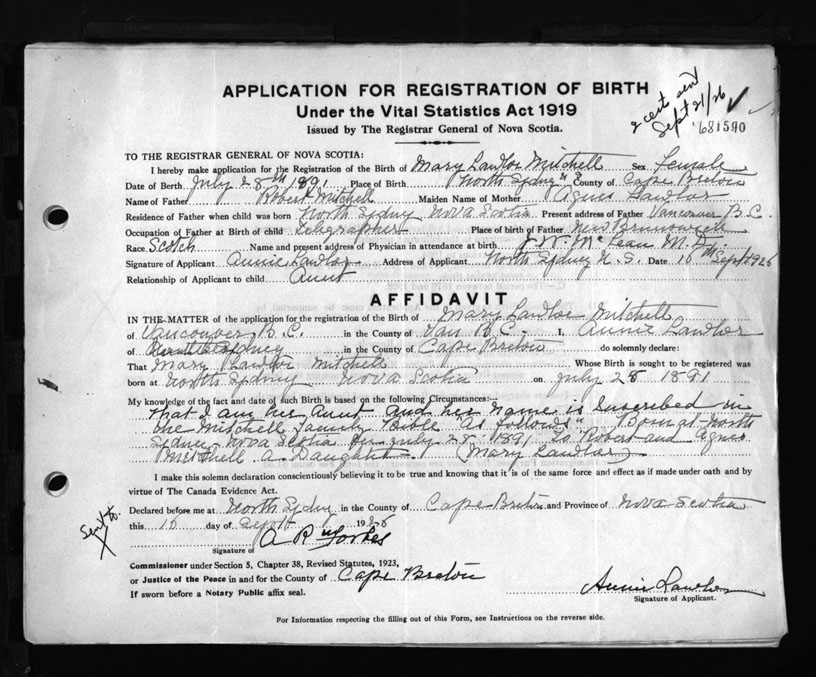 APPLICATION FOR REGISTRATION OF BIRTH
Under the Vital Statistics Act 1919
Issued by The Registrar General of Nova Scotia.
2 certs sent
Sept 21/26
681590
TO THE REGISTRAR GENERAL OF NOVA SCOTIA:
I hereby make application for the Registration of the Birth of Mary Lawlor Mitchell Sex Female
Date of Berth July 28th 1891 Place of Birth North Sydney County of Cape Breton
Name of Father Robert Mitchell Maiden Name of Mother Agnes Lawlor
Residence of Father when child was born North Sydney Nova Scotia Present address of Father Vancouver B.C.
Occupation of Father at Birth of child Telegrapher Place of birth of Father New Brunswick
Race Scotch Name and present address of Physician in attendance at birth J. W. McLean M.D.
Signature of Applicant Annie Lawlor Address of Applicant North Sydney N.S. Date 16th Sept 1926
Relationship of Applicant to child Aunt
AFFIDAVIT
IN THE MATTER of the application for the registration of the Birth of Mary Lawlor Mitchell
of Vancouver B.C. in the County of Van B.C. I, Annie Lawlor
of Sydney in the County of Cape Breton do solemnly declare:
That Mary Lawlor Mitchell Whose Birth is sought to be registered was
born at North Sydney Nova Scotia on July 28 1891
My knowledge of the fact and date of such Birth is based on the following Circumstances:
That I am her Aunt and her name is Inscribed in
the Mitchell Family Bible as follows" Born at North
Sydney Nova Scotia on July 28" 1891 To Robert and Agnes
Mitchell a Daughter (Mary Lawlor)
I make this solemn declaration conscientiously believing it to be true and knowing that it is of the same force and effect as if made under oath and by
virtue of The Canada Evidence Act.
Declared before me at North Sydney in the County of Cape Breton and Province of Nova Scotia
this 16 day of Sept 1926
Sent to
X
A R Forbes
Signature of
Commissioner under Section 5, Chapter 38, Revised Statutes, 1923,
or Justice of the Peace in and for the County of Cape Breton
If sworn before a Notary Public affix seal.
Annie Lawlor
Signature of Applicant.
For Information respecting the filling out of this Form, see Instructions on the reverse side.